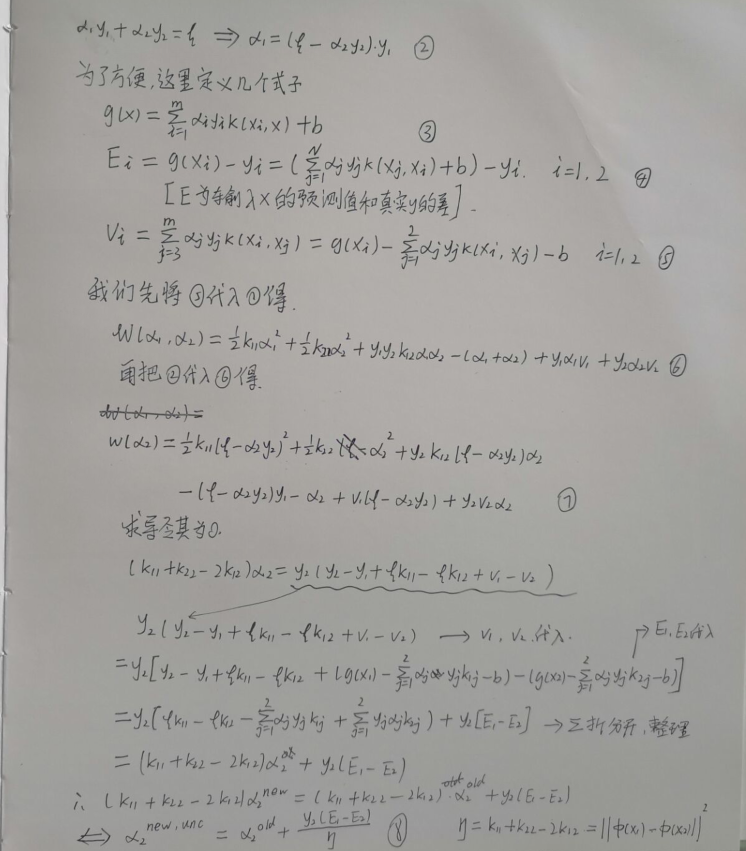 α₁y₁ + α₂y₂ = ξ ⇒ α₁ = (ξ - α₂y₂)·y₁ ②
为了方便,这里定义几个式子
g(x) = Σ_{i=1}^{m} αᵢyᵢk(xᵢ,x) + b ③
Eᵢ = g(xᵢ) - yᵢ = (Σ_{j=1}^{N} αⱼyⱼk(xⱼ,xᵢ) + b) - yᵢ. i=1,2 ④
[E为输入x的预测值和真实y的差].
Vᵢ = Σ_{j=3}^{m} αⱼyⱼk(xᵢ,xⱼ) = g(xᵢ) - Σ_{j=1}^{2} αⱼyⱼk(xᵢ,xⱼ) - b i=1,2 ⑤
我们先将⑤代入①得.
W(α₁,α₂) = ½k₁₁α₁² + ½k₂₂α₂² + y₁y₂k₁₂α₁α₂ - (α₁+α₂) + y₁α₁v₁ + y₂α₂v₂ ⑥
再把②代入⑥得.
W(α₁,α₂) =
W(α₂) = ½k₁₁(ξ-α₂y₂)² + ½k₂₂α₂² + y₂k₁₂(ξ-α₂y₂)α₂
-(ξ-α₂y₂)y₁ - α₂ + v₁(ξ-α₂y₂) + y₂v₂α₂ ⑦
求导至其为0.
(k₁₁+k₂₂-2k₁₂)α₂ = y₂(y₂-y₁+ξk₁₁-ξk₁₂+v₁-v₂)
y₂(y₂-y₁+ξk₁₁-ξk₁₂+v₁-v₂) → v₁,v₂代入. → E₁,E₂代入
=y₂[y₂-y₁+ξk₁₁-ξk₁₂+(g(x₁)-Σ_{j=1}^{2}αⱼyⱼk₁ⱼ-b)-(g(x₂)-Σ_{j=1}^{2}αⱼyⱼk₂ⱼ-b)]
=y₂[ξk₁₁-ξk₁₂-Σ_{j=1}^{2}αⱼyⱼk₁ⱼ+Σ_{j=1}^{2}yⱼαⱼk₂ⱼ)+y₂[E₁-E₂] → Σ拆分开,整理
=(k₁₁+k₂₂-2k₁₂)α₂^{old}+y₂(E₁-E₂)
∴ (k₁₁+k₂₂-2k₁₂)α₂^{new}=(k₁₁+k₂₂-2k₁₂)^{old}·α₂^{old}+y₂(E₁-E₂)
⇔ α₂^{new,unc}=α₂^{old}+y₂(E₁-E₂)/η ⑧ η=k₁₁+k₂₂-2k₁₂=||φ(x₁)-φ(x₂)||²